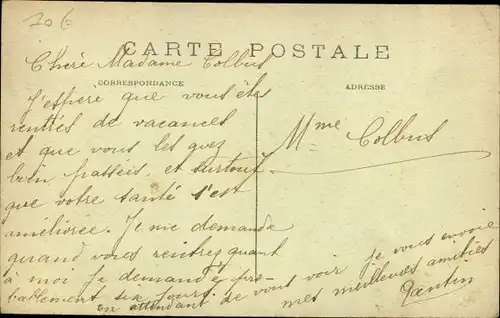 20 €
CARTE POSTALE
CORRESPONDANCE
ADRESSE
Chère Madame Colbus
J'espère que vous êtes
rentrés de vacances
et que vous les avez
bien passées, et surtout
que votre santé s'est
améliorée. Je me demande
quand vous rentrez quant
à moi je demande pro-
bablement six jours.
en attendant de vous voir je vous envoie
mes meilleures amitiés
Mme Colbus